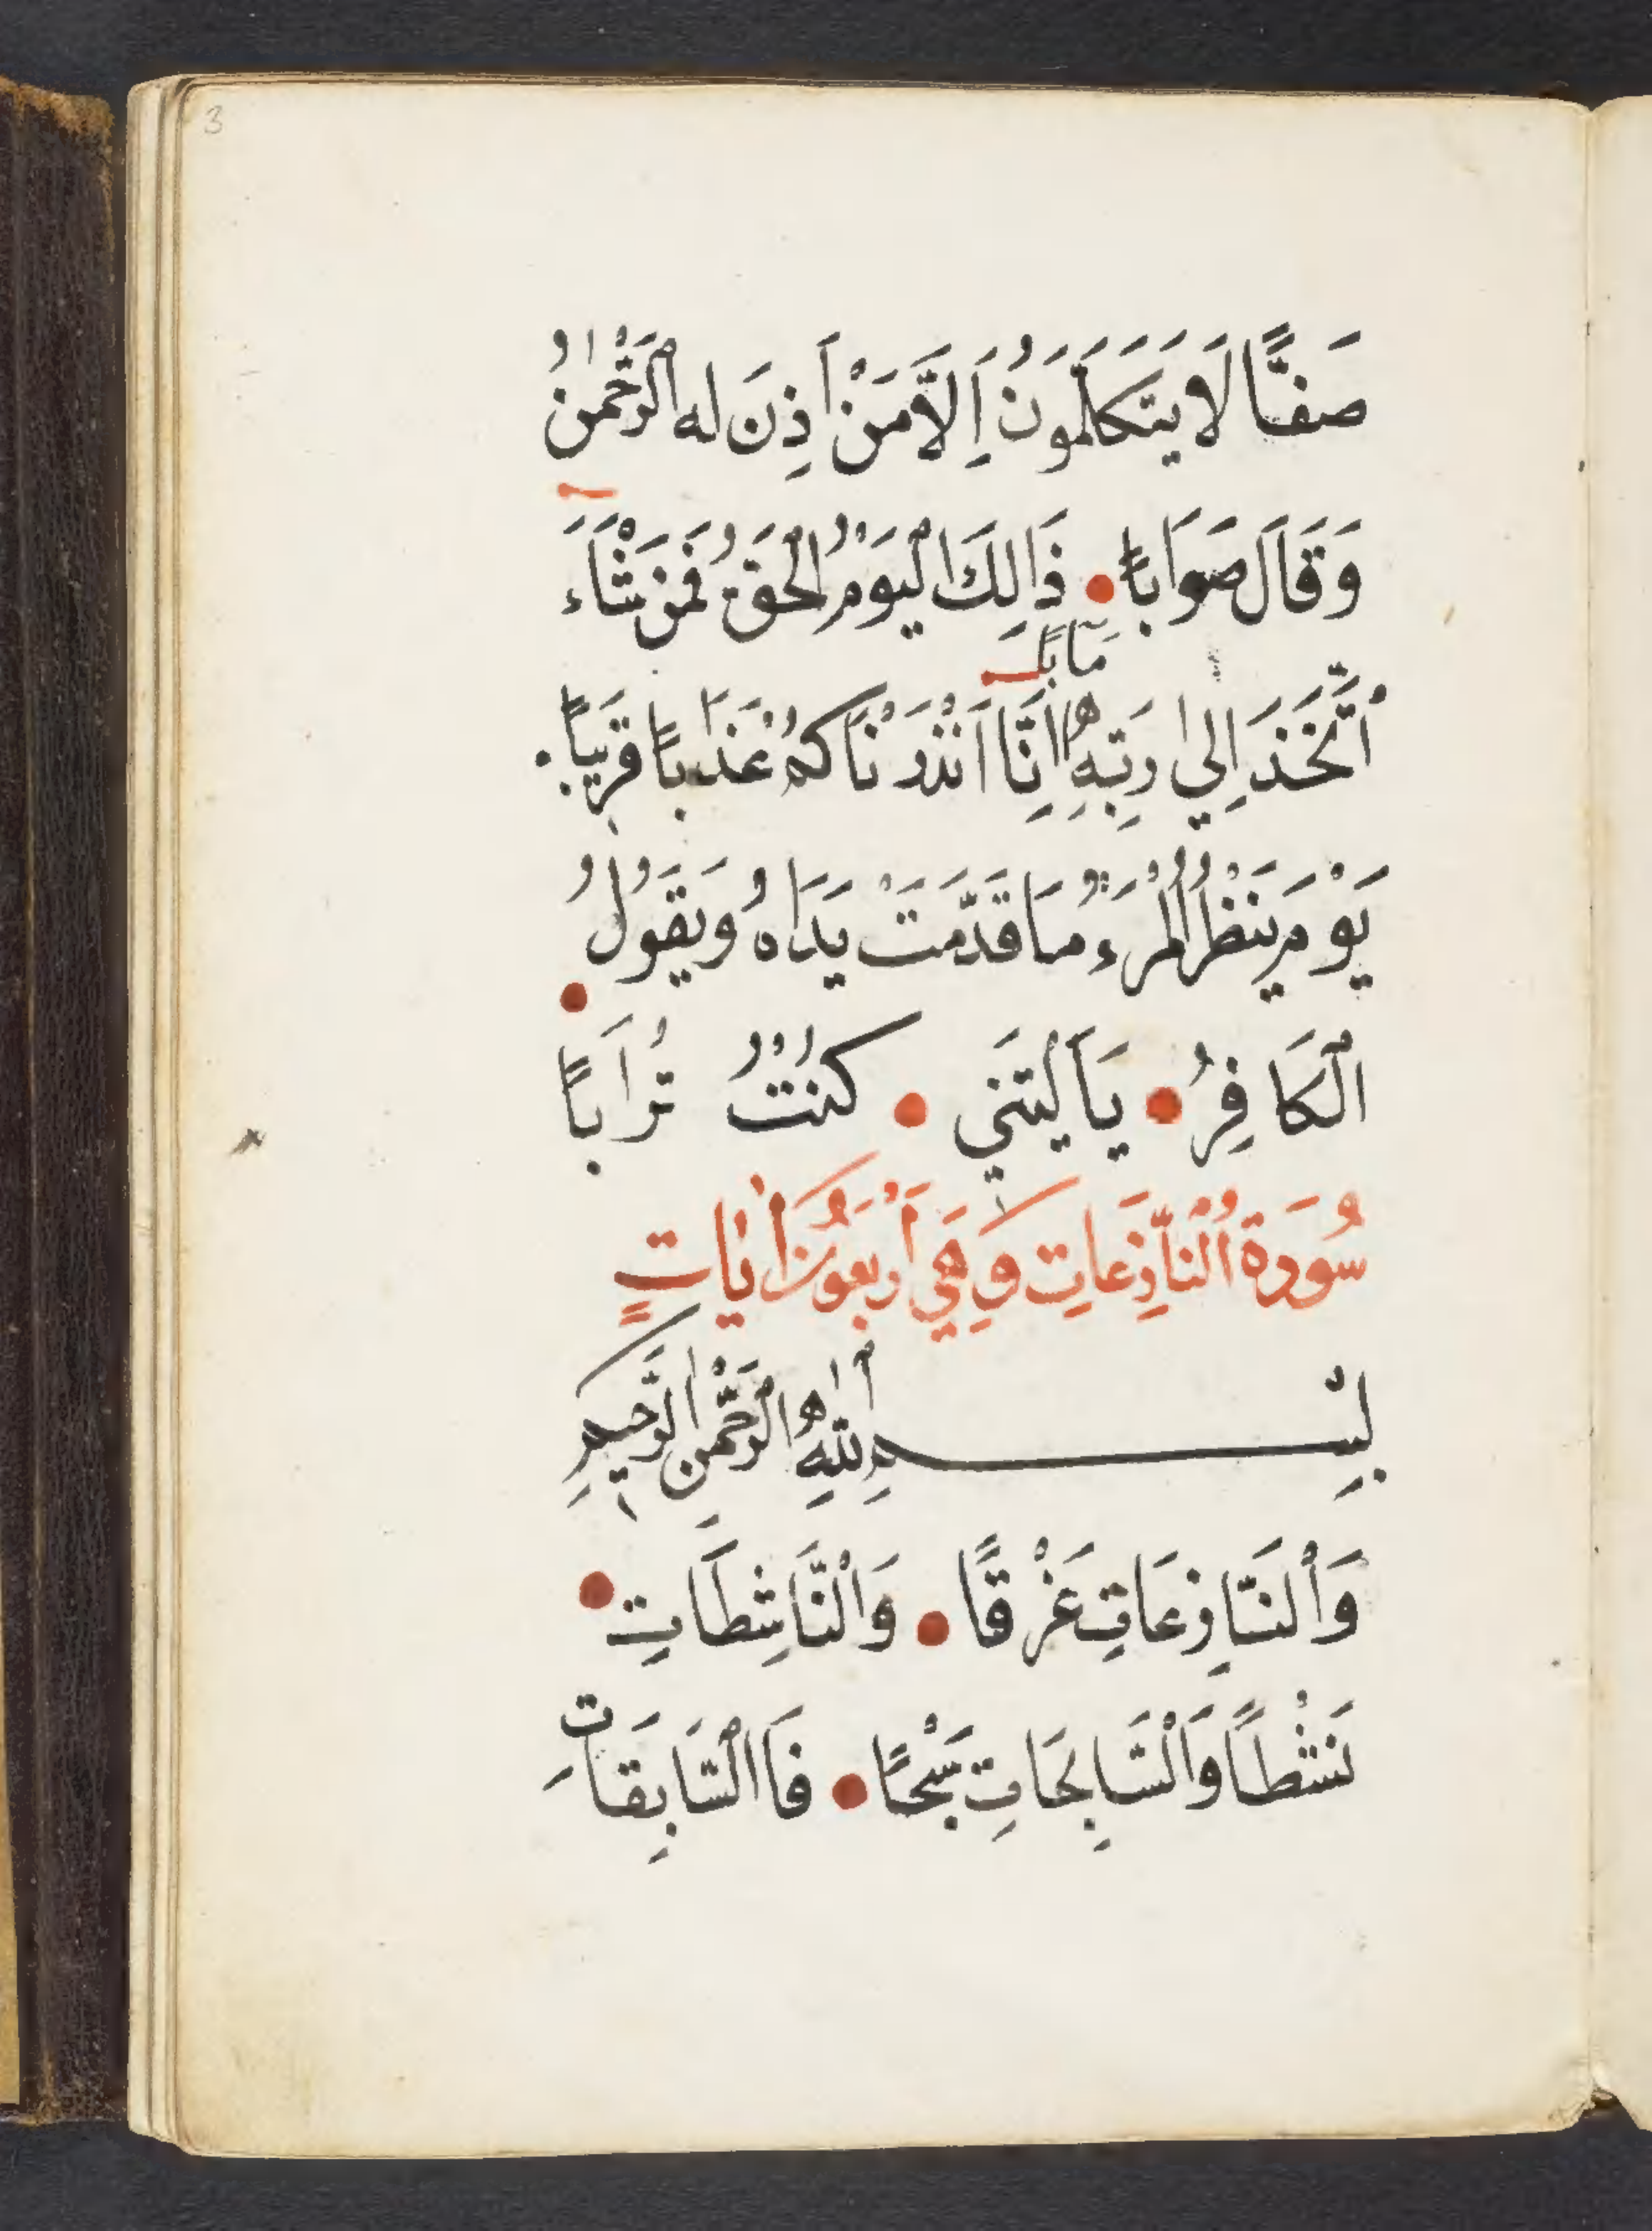 3
صَفًّا لَا يَتَكَلَّمُونَ اِلَّا مَنْ اَذِنَ لَه الرَّحْمٰنُ
وَقَالَ صَوَابًا ذَالِكَ الْيَوْمُ الْحَقُّ فَمَنْ شَاءَ
مَاٰبًا
اتَّخَذَ اِلىٰ رَبِّهِ اِنَّا اَنْذَرْنَاكُمْ عَذَابًا قَرِيبًا
يَوْمَ يَنْظُرُ الْمَرْءُ مَا قَدَّمَتْ يَدَاهُ وَيَقُولُ
الْكَافِرُ يَا لَيْتَنِي كُنْتُ تُرَابًا
سُورَةُ النَّازِعَاتِ وَهِيَ اَرْبَعُونَ اٰيَاتٍ
بِسْمِ اللّٰهِ الرَّحْمٰنِ الرَّحِيمِ
وَالنَّازِعَاتِ غَرْقًا وَالنَّاشِطَاتِ
نَشْطًا وَالسَّابِحَاتِ سَبْحًا فَاالسَّابِقَاتِ